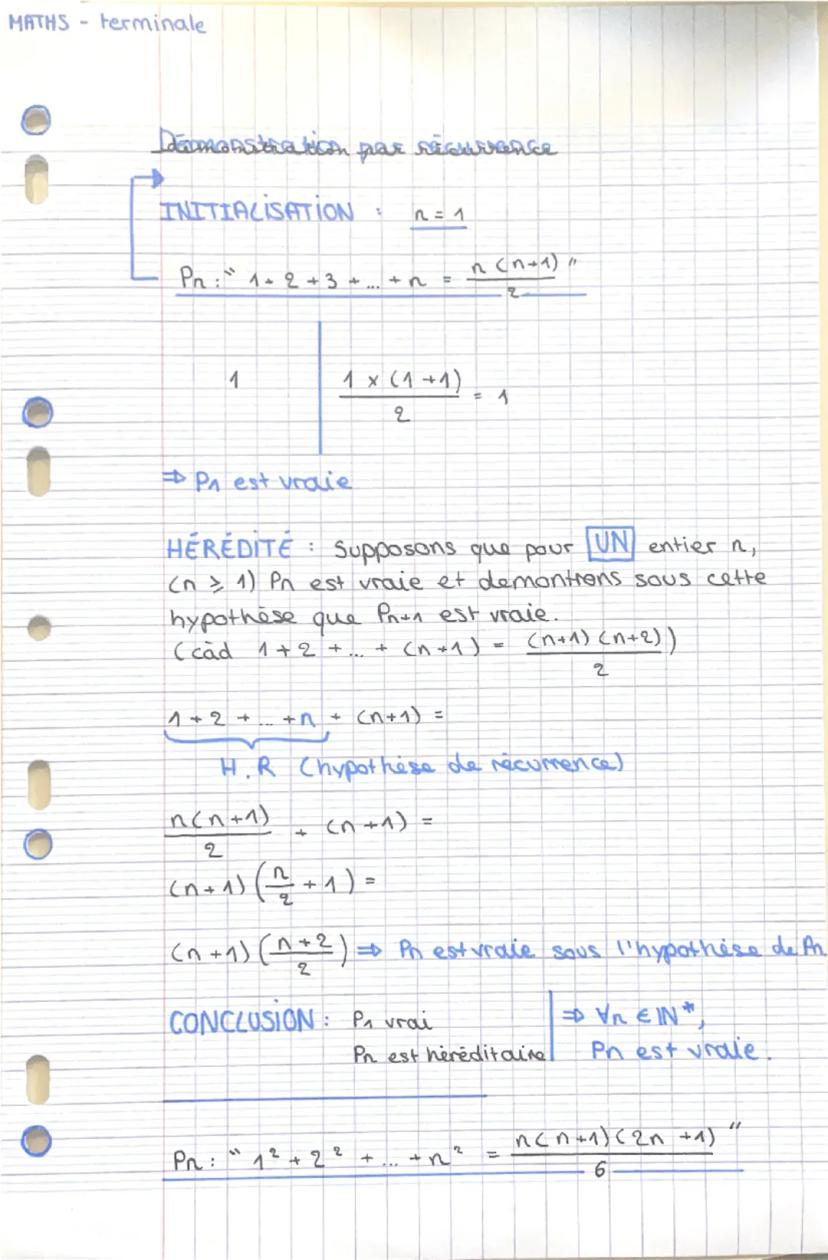 MATHS - terminale
Démonstration par récurrence
INITIALISATION : n = 1
Pn : " 1 + 2 + 3 + ... + n = n(n+1)/2 "
1 | 1 x (1+1)/2 = 1
⇒ P1 est vraie
HÉRÉDITÉ : Supposons que pour UN entier n,
(n ⩾ 1) Pn est vraie et demontrons sous cette
hypothèse que Pn+1 est vraie.
(càd 1 + 2 + ... + (n+1) = (n+1)(n+2)/2)
1 + 2 + ... + n + (n+1) =
H.R (hypothèse de récurrence)
n(n+1)/2 + (n+1) =
(n+1)(n/2 + 1) =
(n+1)(n+2/2) ⇒ Pn est vraie sous l'hypothèse de Pn
CONCLUSION : P1 vrai | ⇒ ∀n ∈ IN*,
Pn est héréditaire | Pn est vraie.
Pn : " 1² + 2² + ... + n² = n(n+1)(2n+1)/6 "